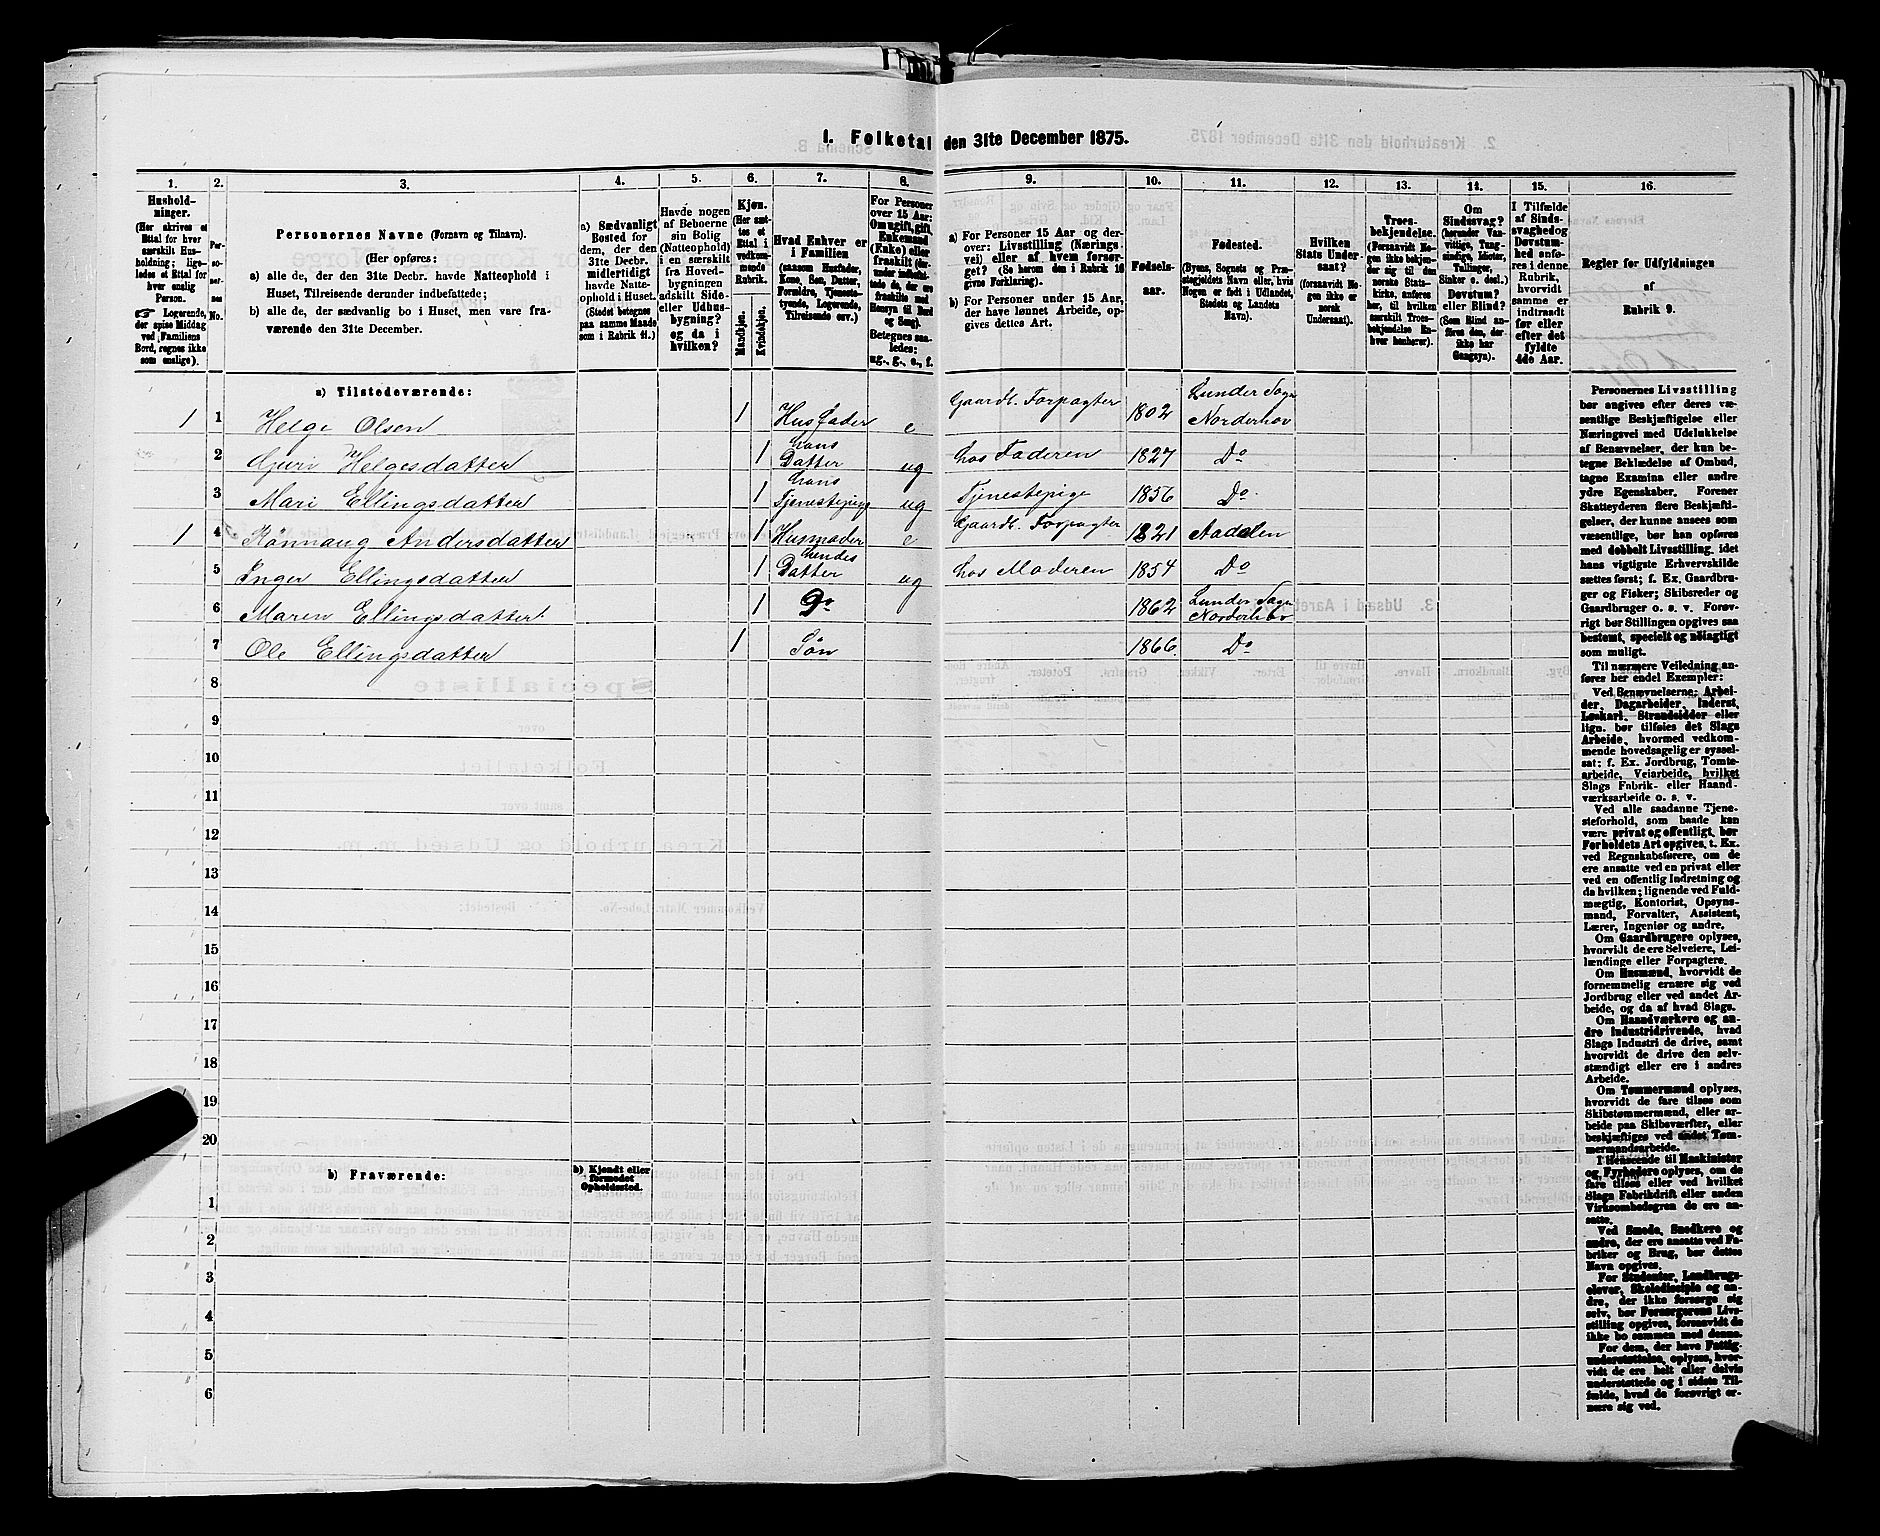 I. Folketal den 31te December 1875.
1. 2. 3. 4. 5. 6. 7. 8. 9. 10. 11. 12. 13. 14. 15. 16.
Hushold-
ninger.
(Her skrives et
Ettal for hver
særskilt Hus-
holdning; lige-
ledes et Ettal for
hver enslig
Person.
☞ Logerende,
der spise Middag
ved Familiens
Bord, regnes ikke
som enslige).
Per-
so-
ner-
nes
No.
Personernes Navne (Fornavn og Tilnavn).
(Her opføres:
a) alle de, der den 31te Decbr. havde Natteophold i
Huset, Tilreisende derunder indbefattede;
b) alle de, der sædvanlig bo i Huset, men vare fra-
værende den 31te December.
a) Sædvanligt
Bosted for
dem, der den
31te Decbr.
midlertidigt
havde Natte-
ophold i Huset.
(Stedet betegnes
paa samme Maade
som i Rubrik 11.)
Havde nogen
af Beboerne
sin Bolig
(Natteophold)
i en særskilt
fra Hoved-
bygningen
adskilt Side-
eller Udhus-
bygning?
og da i
hvilken?
Kjøn.
(Her sæt-
tes et
Ettal i
vedkom-
mende
Rubrik.
Mandkjøn.
Kvindekjøn.
Hvad Enhver er
i Familien
(saasom Husfader,
Kone, Søn, Datter,
Forældre, Tjeneste-
tyende, Logerende,
Tilreisende osv.)
For Personer
over 15 Aar:
Om ugift, gift,
Enkemand
(Enke) eller
fraskilt
Betegnes saa-
ledes:
ug., g., e., f.
a) For Personer 15 Aar og der-
over: Livsstilling (Nærings-
vei) eller af hvem forsør-
get? (Se herom den i Rubrik 16
givne Forklaring).
b) For Personer under 15 Aar,
der have lønnet Arbeide, op-
gives dettes Art.
Fødsels-
aar.
Fødested.
(Byens, Sognets og Præ-
stegjeldets Navn eller, hvis
Nogen er født i Udlandet,
Stedets og Landets
Navn).
Hvilken
Stats Under-
saat?
(forsaavidt No-
gen ikke er
norsk
Undersaat).
Troes-
bekjendelse.
(Forsaavidt No-
gen ikke bekjen-
der sig til den
norske Stats-
kirke, anføres
her, til hvilken
særskilt Troes-
bekjendelse En-
hver henhører).
Om
Sindssvag?
(herunder Van-
vittige, Tung-
sindige, Idioter,
Tullinger,
Sinker o. desl.)
Døvstum?
eller Blind?
(Som Blind an-
føres den, der
ikke har
Gangsyn).
I Tilfælde
af Sinds-
svaghed og
Døvstum-
hed anfø-
res i denne
Rubrik,
hvorvidt
samme er
indtraadt
før eller
efter det
fyldte
4de Aar.
Regler for Udfyldningen
af
Rubrik 9.
a) Tilstedeværende:
1 1 Helge Olsen 1 Husfader e Gaardb. Forpagter 1802 Lunder Sogn Norderhov
2 Guri Helgesdatter 1 hans Datter ug hos Faderen 1827 Do
3 Mari Ellingsdatter 1 hans Tjenestepige ug Tjenestepige 1856 Do
1 4 Rønnaug Andersdatter 1 Husmoder e Gaardb. Forpagter 1821 Aadalen
5 Inger Ellingsdatter 1 hendes Datter ug hos Moderen 1854 Do
6 Maren Ellingsdatter 1 Do 1862 Lunder Sogn Norderhov
7 Ole Ellingsdatter 1 Søn 1866 Do
8
9
10
11
12
13
14
15
16
17
18
19
20
b) Fraværende:
b) Kjendt eller
formodet
Opholdssted.
1
2
3
4
5
6
Personernes Livsstilling
bør angives efter deres væ-
sentlige Beskjæftigelse eller
Næringsvei med Udelukkelse
af Benævnelser, der kun be-
tegne Beklædelse af Ombud,
tagne Examina eller andre
ydre Egenskaber. Forener
Skatteyderen flere Beskjæfti-
gelser, der kunne ansees som
væsentlige, bør han opføres
med dobbelt Livsstilling, idet
hans vigtigste Erhvervskilde
sættes først; f. Ex. Gaardbru-
ger og Fisker; Skibsreder og
Gaardbruger o. s. v. Forøv-
rigt bør Stillingen opgives saa
bestemt, specielt og nøiagtigt
som muligt.
Til nærmere Veiledning an-
føres her endel Exempler:
Ved Benævnelserne: Arbei-
der, Dagarbeider, Inderst,
Løskarl, Strandsidder eller
lign. bør tilføies det Slags
Arbeide, hvormed vedkom-
mende hovedsagelig er syssel-
sat; f. Ex. Jordbrug, Tomte-
arbeide, Veiarbeide, hvilket
Slags Fabrik- eller Haand-
værksarbeide o. s. v.
Ved alle saadanne Tjene-
steforhold, som baade kan
være privat og offentligt, bør
Forholdets Art opgives, t. Ex.
ved Regnskabsførere, om de
ere ansatte ved en privat eller
ved en offentlig Indretning og
da hvilken; lignende ved Fuld-
mægtig, Kontorist, Opsyns-
mand, Forvalter, Assistent,
Lærer, Ingeniør og andre.
Om Gaardbrugere oplyses,
hvorvidt de ere Selveiere, Lei-
lændinge eller Forpagtere.
Om Husmænd, hvorvidt de
fornemmelig ernære sig ved
Jordbrug eller ved andet Ar-
beide, og da af hvad Slags.
Om Haandværkere og an-
dre Industridrivende, hvad
Slags Industri de drive, samt
hvorvidt de drive den selv-
stændigt eller ere i andres
Arbeide.
Om Tømmermænd oplyses,
hvorvidt de fare tilsøs som
Skibstømmermænd, eller ar-
beide paa Skibsværfter, eller
beskjæftiges ved andet Tøm-
mermandsarbeide.
I Henseende til Maskinister
og Fyrbødere oplyses, om de
fare tilsøs eller ved hvilket
Slags Fabrikdrift eller anden
Virksomhedsgren de ere an-
satte.
Ved Smede, Snedkere og
andre, der ere ansatte ved Fa-
briker og Brug, bør dettes
Navn opgives.
For Studenter, Landbrugs-
elever, Skoledisciple og an-
dre, der ikke forsørge sig
selv, bør Forsørgerens Livs-
stilling opgives, forsaavidt de
ikke bo sammen med denne.
For dem, der have Fattig-
understøttelse, oplyses, hvor-
vidt de ere helt eller delvis
understøttede og i sidste Til-
fælde, hvad de forøvrigt er-
nære sig ved.